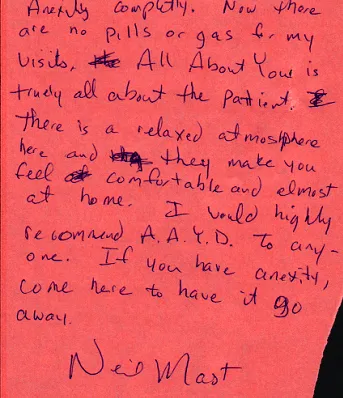 Anexity completly. Now there
are no pills or gas for my
visits. All About You is
truely all about the patient.
There is a relaxed atmosphere
here and they make you
feel comfortable and elmost
at home. I would highly
recommend A.A.Y.D. To any-
one. If you have anexity,
come here to have it go
away.
Neil Mast